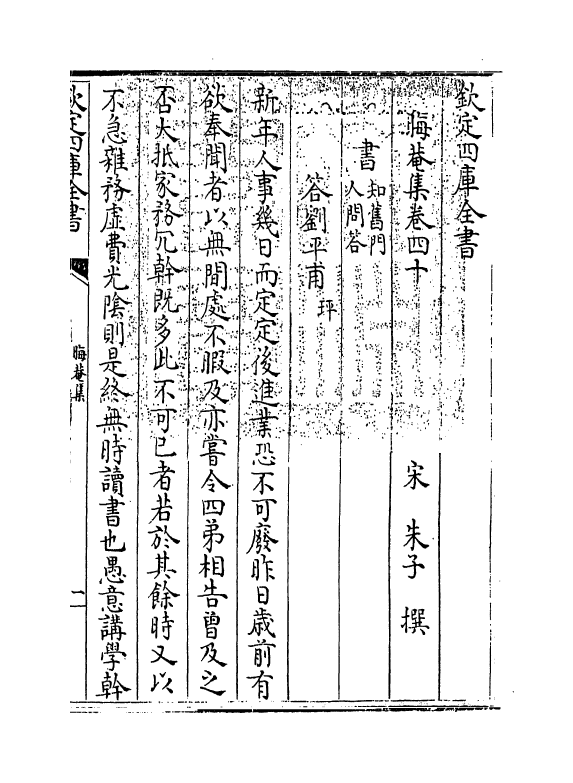 欽定四庫全書
晦菴集卷四十
宋 朱子 撰
書 知舊門人問答
答劉平甫 玶
新年人事幾日而定定後進業恐不可廢昨日歳前有
欲奉聞者以無閒處不暇及亦嘗令四弟相告曽及之
否大抵家務冗幹既多此不可已者若於其餘時又以
不急雜務虚費光隂則是終無時讀書也愚意講學幹
欽定四庫全書
晦菴集